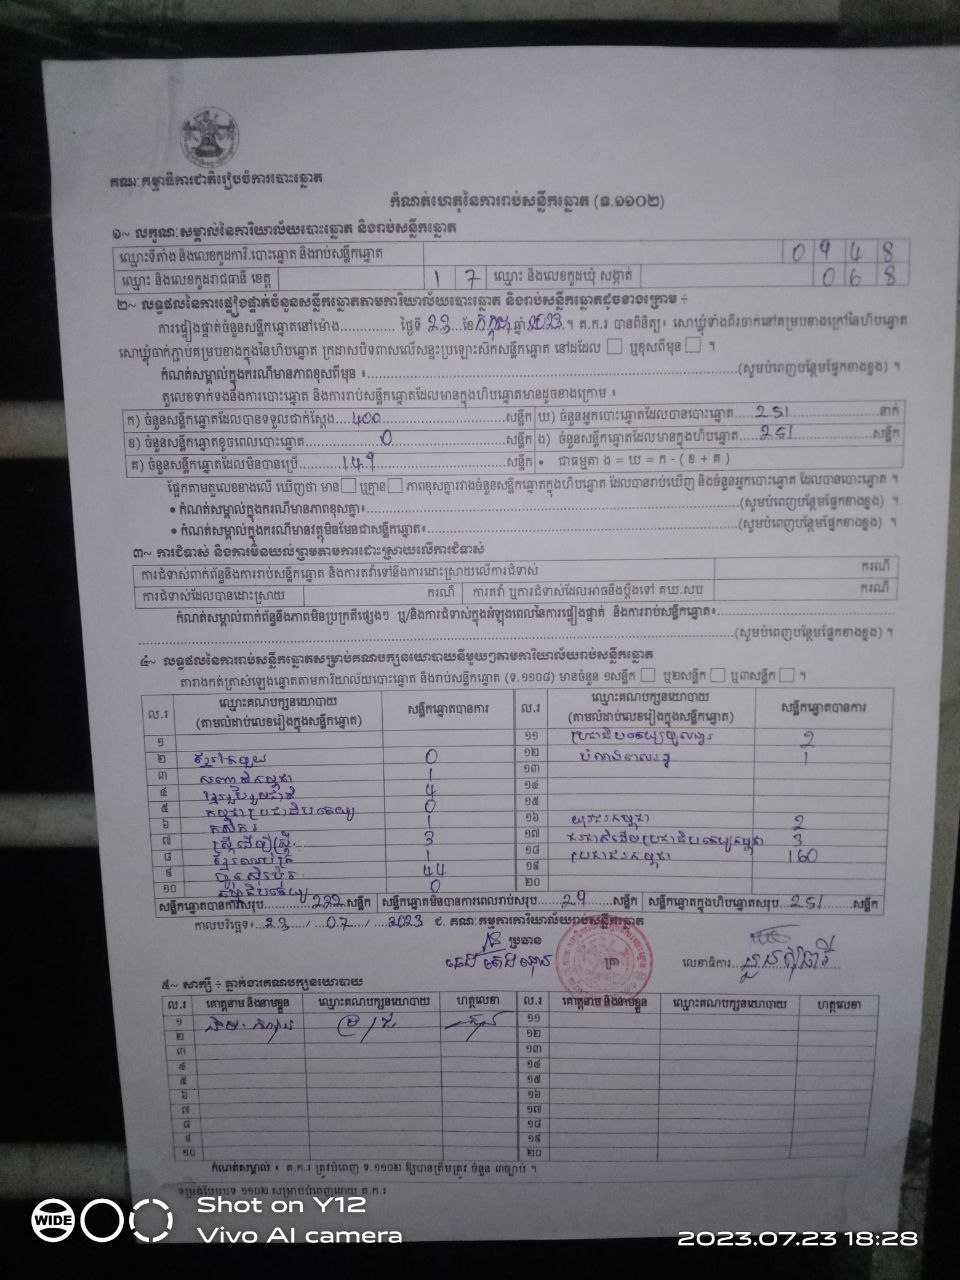 គណៈកម្មាធិការជាតិរៀបចំការបោះឆ្នោត
កំណត់ហេតុនៃការរាប់សន្លឹកឆ្នោត (ទ.១១០២)
១~ លក្ខណៈសម្គាល់នៃការិយាល័យបោះឆ្នោត និងរាប់សន្លឹកឆ្នោត
ឈ្មោះទីតាំង និងលេខកូដការិ.បោះឆ្នោត និងរាប់សន្លឹកឆ្នោត 0948
ឈ្មោះ និងលេខកូដរាជធានី ខេត្ត 17 ឈ្មោះ និងលេខកូដឃុំ សង្កាត់ 068
២~ លទ្ធផលនៃការផ្ទៀងផ្ទាត់ចំនួនសន្លឹកឆ្នោតតាមការិយាល័យបោះឆ្នោត និងរាប់សន្លឹកឆ្នោតដូចខាងក្រោម ÷
ការផ្ទៀងផ្ទាត់ចំនួនសន្លឹកឆ្នោតនៅម៉ោង............. ថ្ងៃទី 23 ...ខែ កក្កដា ឆ្នាំ 2023 ។ គ.ក.រ បានពិនិត្យ៖ សោឃ្លុំទាំងពីរចាក់នៅគម្របខាងក្រៅនៃហិបឆ្នោត
សោឃ្លុំចាក់ភ្ជាប់គម្របខាងក្នុងនៃហិបឆ្នោត ក្រដាសបិទពាសលើសន្ទះប្រឡោះស៊កសន្លឹកឆ្នោត នៅដដែល ☐ ឬខុសពីមុន ☐ ។
កំណត់សម្គាល់ក្នុងករណីមានភាពខុសពីមុន ៖...............(សូមបំពេញបន្ថែមផ្នែកខាងខ្នង) ។
តួលេខទាក់ទងនឹងការបោះឆ្នោត និងការរាប់សន្លឹកឆ្នោតដែលមានក្នុងហិបឆ្នោតមានដូចខាងក្រោម ៖
ក) ចំនួនសន្លឹកឆ្នោតដែលបានទទួលជាក់ស្តែង....400...............សន្លឹក ឃ) ចំនួនអ្នកបោះឆ្នោតដែលបានបោះឆ្នោត.....251...............នាក់
ខ) ចំនួនសន្លឹកឆ្នោតខូចពេលបោះឆ្នោត............0...............សន្លឹក ង) ចំនួនសន្លឹកឆ្នោតដែលមានក្នុងហិបឆ្នោត....251...............សន្លឹក
គ) ចំនួនសន្លឹកឆ្នោតដែលមិនបានប្រើ........149...............សន្លឹក • ជាធម្មតា ង = ឃ = ក - ( ខ + គ )
ផ្អែកតាមតួលេខខាងលើ ឃើញថា មាន ☐ ឬគ្មាន ☐ ភាពខុសគ្នារវាងចំនួនសន្លឹកឆ្នោតក្នុងហិបឆ្នោត ដែលបានរាប់ឃើញ និងចំនួនអ្នកបោះឆ្នោត ដែលបានបោះឆ្នោត ។
• កំណត់សម្គាល់ក្នុងករណីមានភាពខុសគ្នា៖...............(សូមបំពេញបន្ថែមផ្នែកខាងខ្នង) ។
• កំណត់សម្គាល់ក្នុងករណីមានវត្ថុមិនមែនជាសន្លឹកឆ្នោត៖...............(សូមបំពេញបន្ថែមផ្នែកខាងខ្នង) ។
៣~ ការជំទាស់ និងការមិនយល់ព្រមតាមការដោះស្រាយលើការជំទាស់
ការជំទាស់ពាក់ព័ន្ធនឹងការរាប់សន្លឹកឆ្នោត និងការតវ៉ាទៅនឹងការដោះស្រាយលើការជំទាស់ ករណី
ការជំទាស់ដែលបានដោះស្រាយ ករណី ការតវ៉ា ឬការជំទាស់ដែលអាចនឹងប្តឹងទៅ គឃ.សប ករណី
កំណត់សម្គាល់ពាក់ព័ន្ធនឹងភាពមិនប្រក្រតីផ្សេងៗ ឬ/និងការជំទាស់ក្នុងអំឡុងពេលនៃការផ្ទៀងផ្ទាត់ និងការរាប់សន្លឹកឆ្នោត៖...............
...............(សូមបំពេញបន្ថែមផ្នែកខាងខ្នង) ។
៤~ លទ្ធផលនៃការរាប់សន្លឹកឆ្នោតសម្រាប់គណបក្សនយោបាយនីមួយៗតាមការិយាល័យរាប់សន្លឹកឆ្នោត
តារាងកត់ត្រាសំឡេងឆ្នោតតាមការិយាល័យបោះឆ្នោត និងរាប់សន្លឹកឆ្នោត (ទ.១១០៨) មានចំនួន ១សន្លឹក ☐ ឬ២សន្លឹក ☐ ឬ៣សន្លឹក ☐ ។
ល.រ ឈ្មោះគណបក្សនយោបាយ (តាមលំដាប់លេខរៀងក្នុងសន្លឹកឆ្នោត) សន្លឹកឆ្នោតបានការ ល.រ ឈ្មោះគណបក្សនយោបាយ (តាមលំដាប់លេខរៀងក្នុងសន្លឹកឆ្នោត) សន្លឹកឆ្នោតបានការ
១ ១១ 2
២ 0 ១២ 1
៣ 1 ១៣
៤ ខ្មែររួបរួមជាតិ 4 ១៤
៥ កម្ពុជាប្រជាធិបតេយ្យ 0 ១៥
៦ កសិករ 1 ១៦ យុវជនកម្ពុជា 2
៧ ស្ត្រីដើម្បីស្ត្រី 3 ១៧ 3
៨ 1 ១៨ ប្រជាជនកម្ពុជា 160
៩ ហ៊្វុនស៊ិនប៉ិច 44 ១៩
១០ 0 ២០
សន្លឹកឆ្នោតបានការសរុប......222......សន្លឹក សន្លឹកឆ្នោតមិនបានការពេលរាប់សរុប......29......សន្លឹក សន្លឹកឆ្នោតក្នុងហិបឆ្នោតសរុប...251......សន្លឹក
កាលបរិច្ឆេទ៖...23.../...07.../...2023 ជ. គណៈកម្មការការិយាល័យរាប់សន្លឹកឆ្នោត
ប្រធាន ត្រា លេខាធិការ
៥~ សាក្សី ÷ ភ្នាក់ងារគណបក្សនយោបាយ
ល.រ គោត្តនាម និងនាមខ្លួន ឈ្មោះគណបក្សនយោបាយ ហត្ថលេខា ល.រ គោត្តនាម និងនាមខ្លួន ឈ្មោះគណបក្សនយោបាយ ហត្ថលេខា
១ ១១
២ ១២
៣ ១៣
៤ ១៤
៥ ១៥
៦ ១៦
៧ ១៧
៨ ១៨
៩ ១៩
១០ ២០
កំណត់សម្គាល់ ៖ គ.ក.រ ត្រូវបំពេញ ទ.១១០២ ឱ្យបានត្រឹមត្រូវ ចំនួន ៣ច្បាប់ ។
ទម្រង់បែបបទ ១១០២ សម្រាប់បំពេញដោយ គ.ក.រ
WIDE
Shot on Y12
Vivo AI camera
2023.07.23 18:28